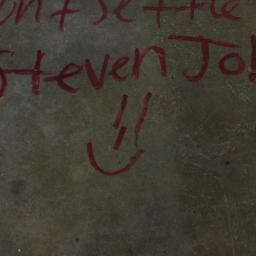 ont settle
Steven Jo